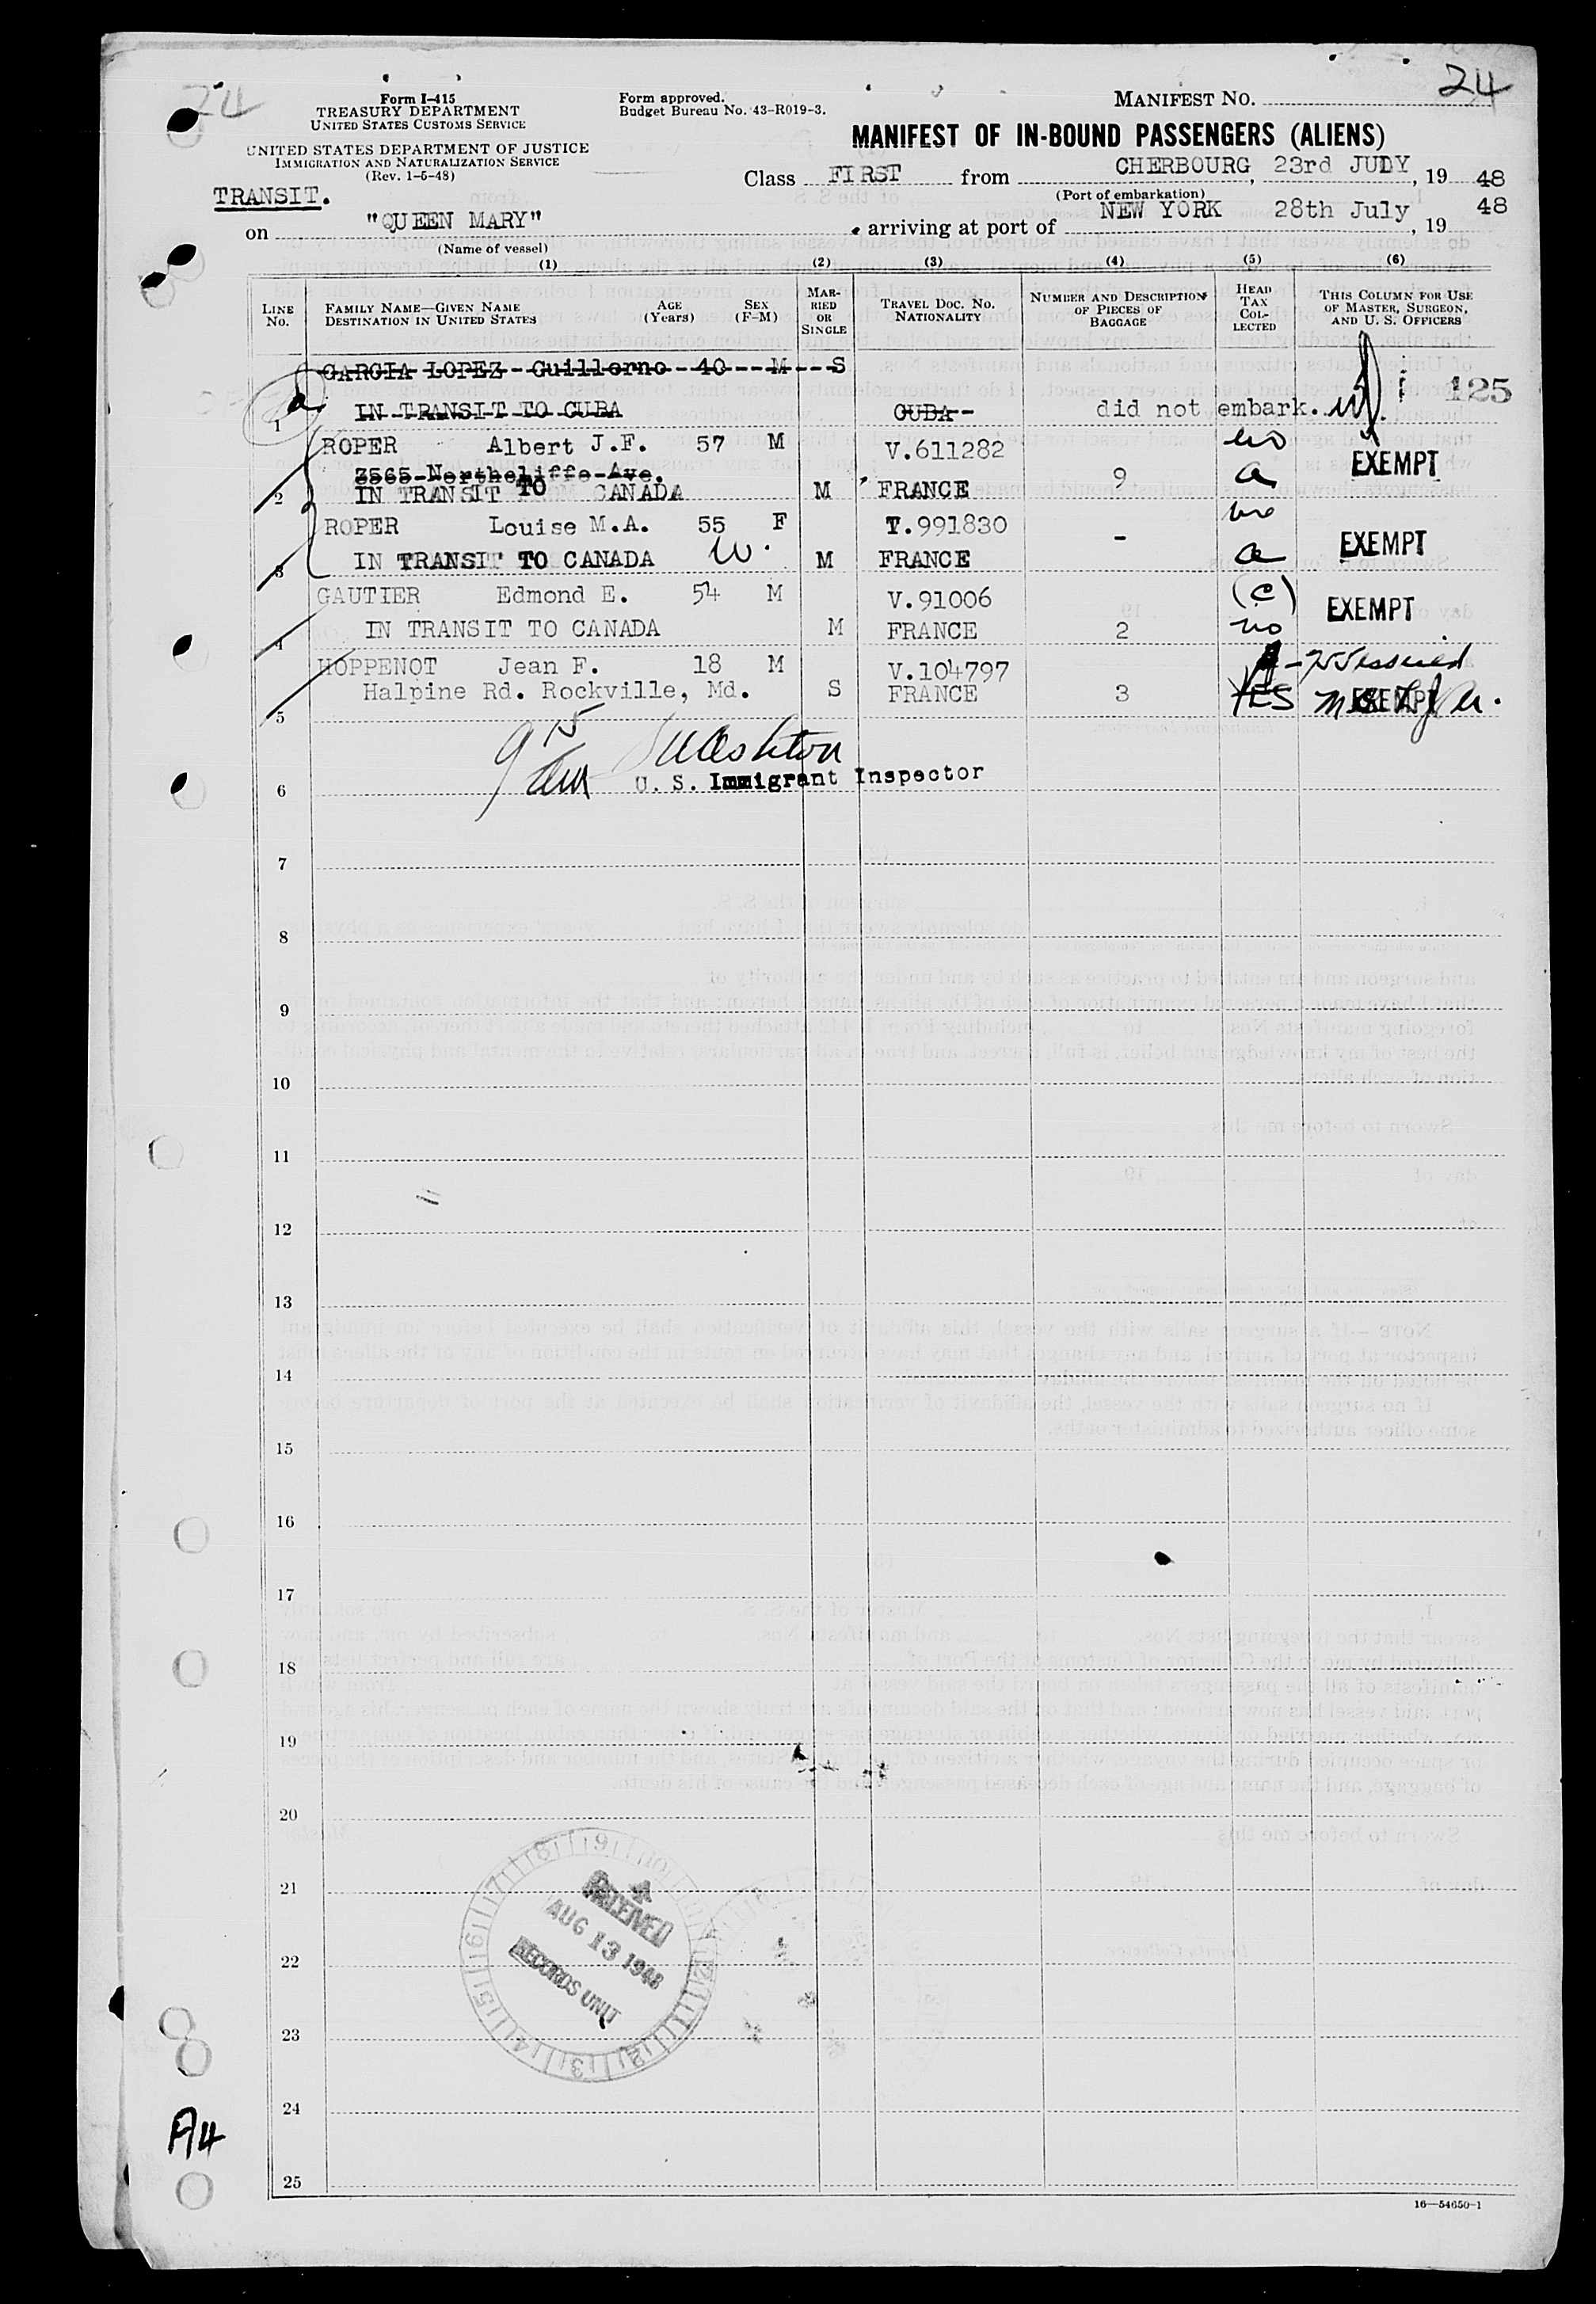 24
24
Form I-415
TREASURY DEPARTMENT
UNITED STATES CUSTOMS SERVICE
UNITED STATES DEPARTMENT OF JUSTICE
IMMIGRATION AND NATURALIZATION SERVICE
(Rev. 1-5-48)
Form approved.
Budget Bureau No. 43-R019-3.
MANIFEST NO.
MANIFEST OF IN-BOUND PASSENGERS (ALIENS)
Class FIRST from CHERBOURG, 23rd JULY, 19 48
(Port of embarkation)
TRANSIT.
on "QUEEN MARY" arriving at port of NEW YORK 28th July, 19 48
(Name of vessel)
(1) (2) (3) (4) (5) (6)
LINE No. FAMILY NAME—GIVEN NAME DESTINATION IN UNITED STATES AGE (Years) SEX (F-M) MARRIED OR SINGLE TRAVEL DOC. No. NATIONALITY NUMBER AND DESCRIPTION OF PIECES OF BAGGAGE HEAD TAX COLLECTED THIS COLUMN FOR USE OF MASTER, SURGEON, AND U. S. OFFICERS
GARCIA LOPEZ Guillerno 40 M S
125
1 IN TRANSIT TO CUBA CUBA did not embark.
ROPER Albert J.F. 57 M V.611282 no EXEMPT
3565 Northcliffe Ave.
2 IN TRANSIT TO CANADA M FRANCE 9 a
ROPER Louise M.A. 55 F T.991830 - EXEMPT
3 IN TRANSIT TO CANADA W. M FRANCE a
GAUTIER Edmond E. 54 M V.91006 (c) EXEMPT
4 IN TRANSIT TO CANADA M FRANCE 2 no
HOPPENOT Jean F. 18 M V.104797 issued
5 Halpine Rd. Rockville, Md. S FRANCE 3 YES EXEMPT
U. S. Immigrant Inspector
6
7
8
9
10
11
12
13
14
15
16
17
18
19
20
21
22
23
24
25
RECEIVED
AUG 13 1948
RECORDS UNIT
A4
16—54650-1